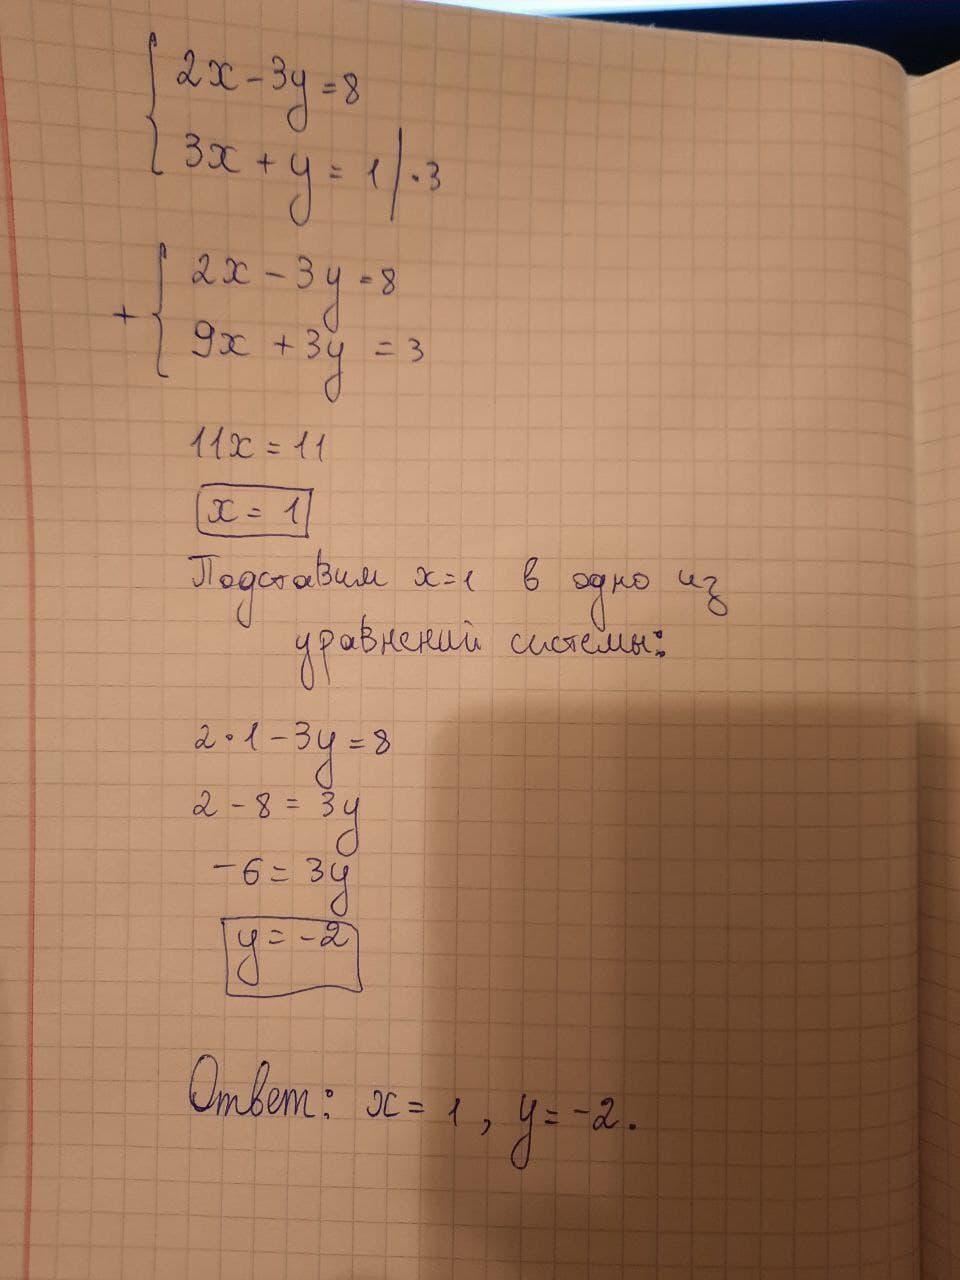 2x - 3y = 8
3x + y = 1 | · 3
2x - 3y = 8
+
9x + 3y = 3
11x = 11
x = 1
Подставим x=1 в одно из
уравнений системы:
2·1 - 3y = 8
2 - 8 = 3y
-6 = 3y
y = -2
Ответ: x = 1, y = -2.